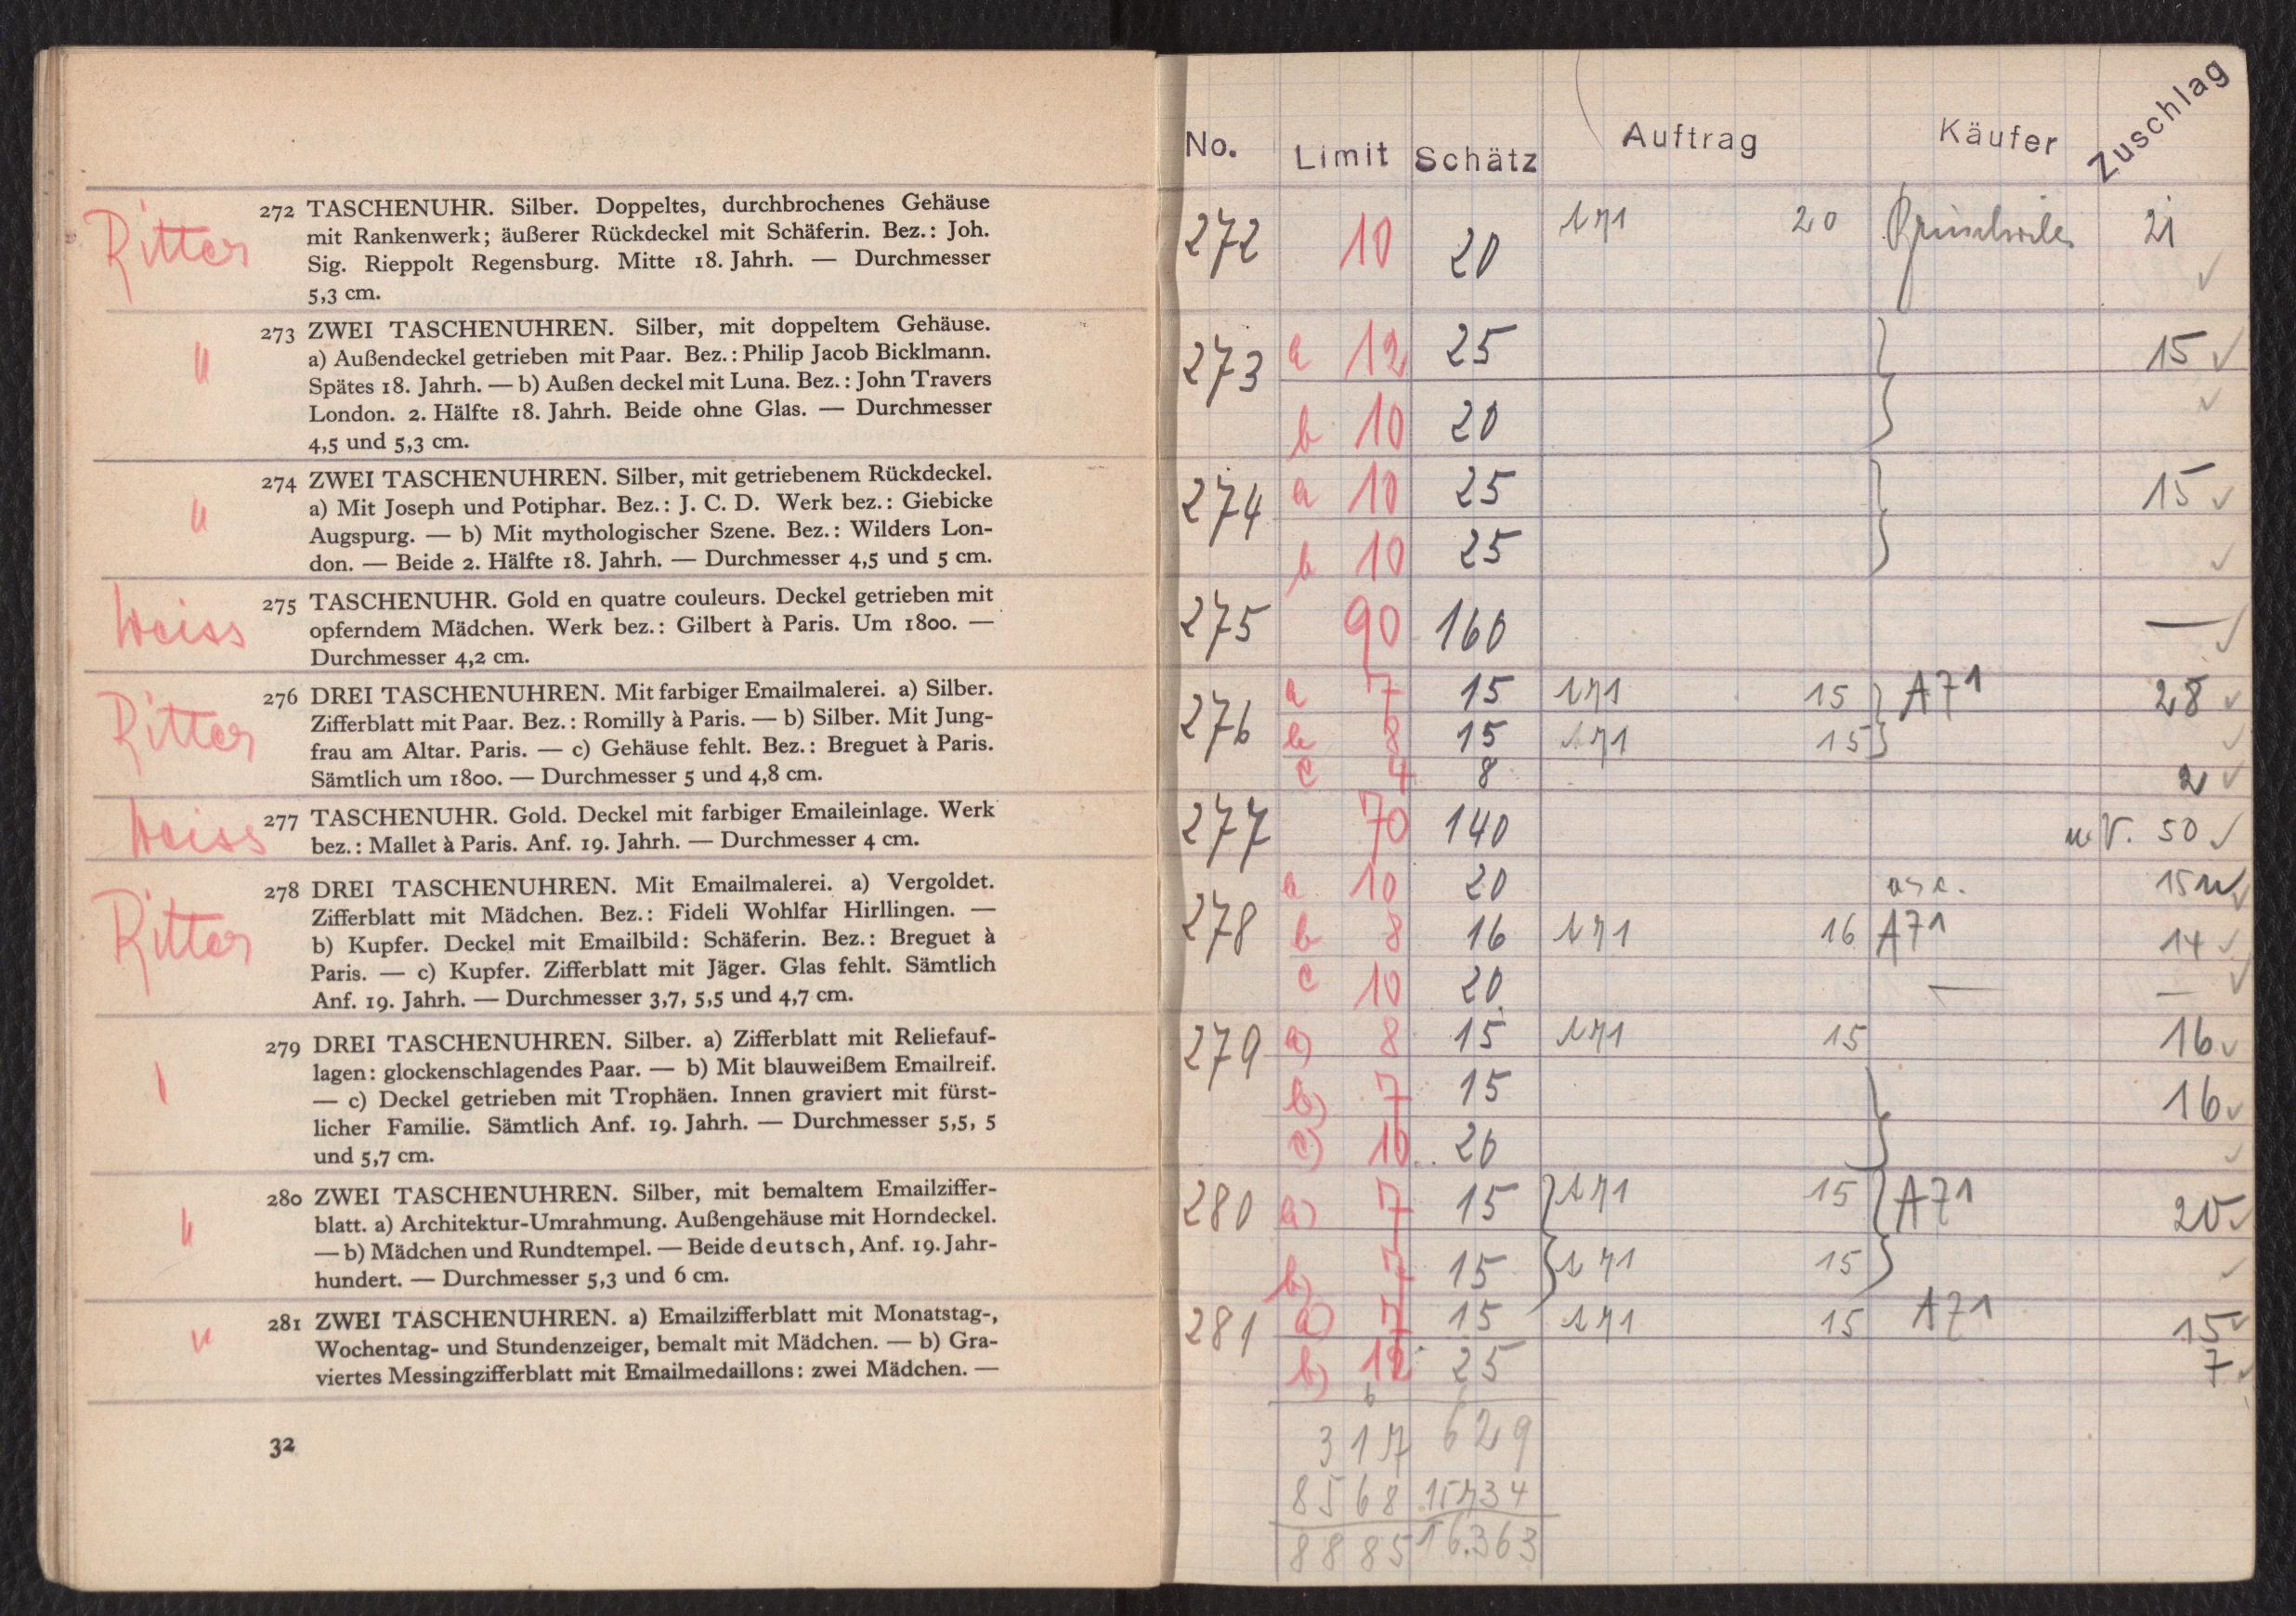 Ritter
272 TASCHENUHR. Silber. Doppeltes, durchbrochenes Gehäuse
mit Rankenwerk; äußerer Rückdeckel mit Schäferin. Bez.: Joh.
Sig. Rieppolt Regensburg. Mitte 18. Jahrh. — Durchmesser
5,3 cm.
"
273 ZWEI TASCHENUHREN. Silber, mit doppeltem Gehäuse.
a) Außendeckel getrieben mit Paar. Bez.: Philip Jacob Bicklmann.
Spätes 18. Jahrh. — b) Außen deckel mit Luna. Bez.: John Travers
London. 2. Hälfte 18. Jahrh. Beide ohne Glas. — Durchmesser
4,5 und 5,3 cm.
"
274 ZWEI TASCHENUHREN. Silber, mit getriebenem Rückdeckel.
a) Mit Joseph und Potiphar. Bez.: J. C. D. Werk bez.: Giebicke
Augspurg. — b) Mit mythologischer Szene. Bez.: Wilders Lon-
don. — Beide 2. Hälfte 18. Jahrh. — Durchmesser 4,5 und 5 cm.
Weiss
275 TASCHENUHR. Gold en quatre couleurs. Deckel getrieben mit
opferndem Mädchen. Werk bez.: Gilbert à Paris. Um 1800. —
Durchmesser 4,2 cm.
Ritter
276 DREI TASCHENUHREN. Mit farbiger Emailmalerei. a) Silber.
Zifferblatt mit Paar. Bez.: Romilly à Paris. — b) Silber. Mit Jung-
frau am Altar. Paris. — c) Gehäuse fehlt. Bez.: Breguet à Paris.
Sämtlich um 1800. — Durchmesser 5 und 4,8 cm.
Weiss
277 TASCHENUHR. Gold. Deckel mit farbiger Emaileinlage. Werk
bez.: Mallet à Paris. Anf. 19. Jahrh. — Durchmesser 4 cm.
Ritter
278 DREI TASCHENUHREN. Mit Emailmalerei. a) Vergoldet.
Zifferblatt mit Mädchen. Bez.: Fideli Wohlfar Hirllingen. —
b) Kupfer. Deckel mit Emailbild: Schäferin. Bez.: Breguet à
Paris. — c) Kupfer. Zifferblatt mit Jäger. Glas fehlt. Sämtlich
Anf. 19. Jahrh. — Durchmesser 3,7, 5,5 und 4,7 cm.
279 DREI TASCHENUHREN. Silber. a) Zifferblatt mit Reliefauf-
lagen: glockenschlagendes Paar. — b) Mit blauweißem Emailreif.
— c) Deckel getrieben mit Trophäen. Innen graviert mit fürst-
licher Familie. Sämtlich Anf. 19. Jahrh. — Durchmesser 5,5, 5
und 5,7 cm.
"
280 ZWEI TASCHENUHREN. Silber, mit bemaltem Emailziffer-
blatt. a) Architektur-Umrahmung. Außengehäuse mit Horndeckel.
— b) Mädchen und Rundtempel. — Beide deutsch, Anf. 19. Jahr-
hundert. — Durchmesser 5,3 und 6 cm.
"
281 ZWEI TASCHENUHREN. a) Emailzifferblatt mit Monatstag-,
Wochentag- und Stundenzeiger, bemalt mit Mädchen. — b) Gra-
viertes Messingzifferblatt mit Emailmedaillons: zwei Mädchen. —
32
No. Limit Schätz Auftrag Käufer Zuschlag
272 10 20 20 21 ✓
273 a 12 25 15 ✓
b 10 20 ✓
274 a 10 25 15 ✓
b 10 25 ✓
275 90 160 — ✓
276 a 7 15 15 A71 28 ✓
b 8 15 15 ✓
c 4 8 2 ✓
277 70 140 u. V. 50 ✓
278 a 10 20 15
b 8 16 16 A71 14 ✓
c 10 20 — — ✓
279 a) 8 15 15 16 ✓
b) 7 15 16 ✓
c) 10 20 ✓
280 a) 7 15 15 A71 20 ✓
b) 7 15 15 ✓
281 a) 7 15 15 A71 15 ✓
b) 12 25 7 ✓
317 629
8568 15734
8885 16.363